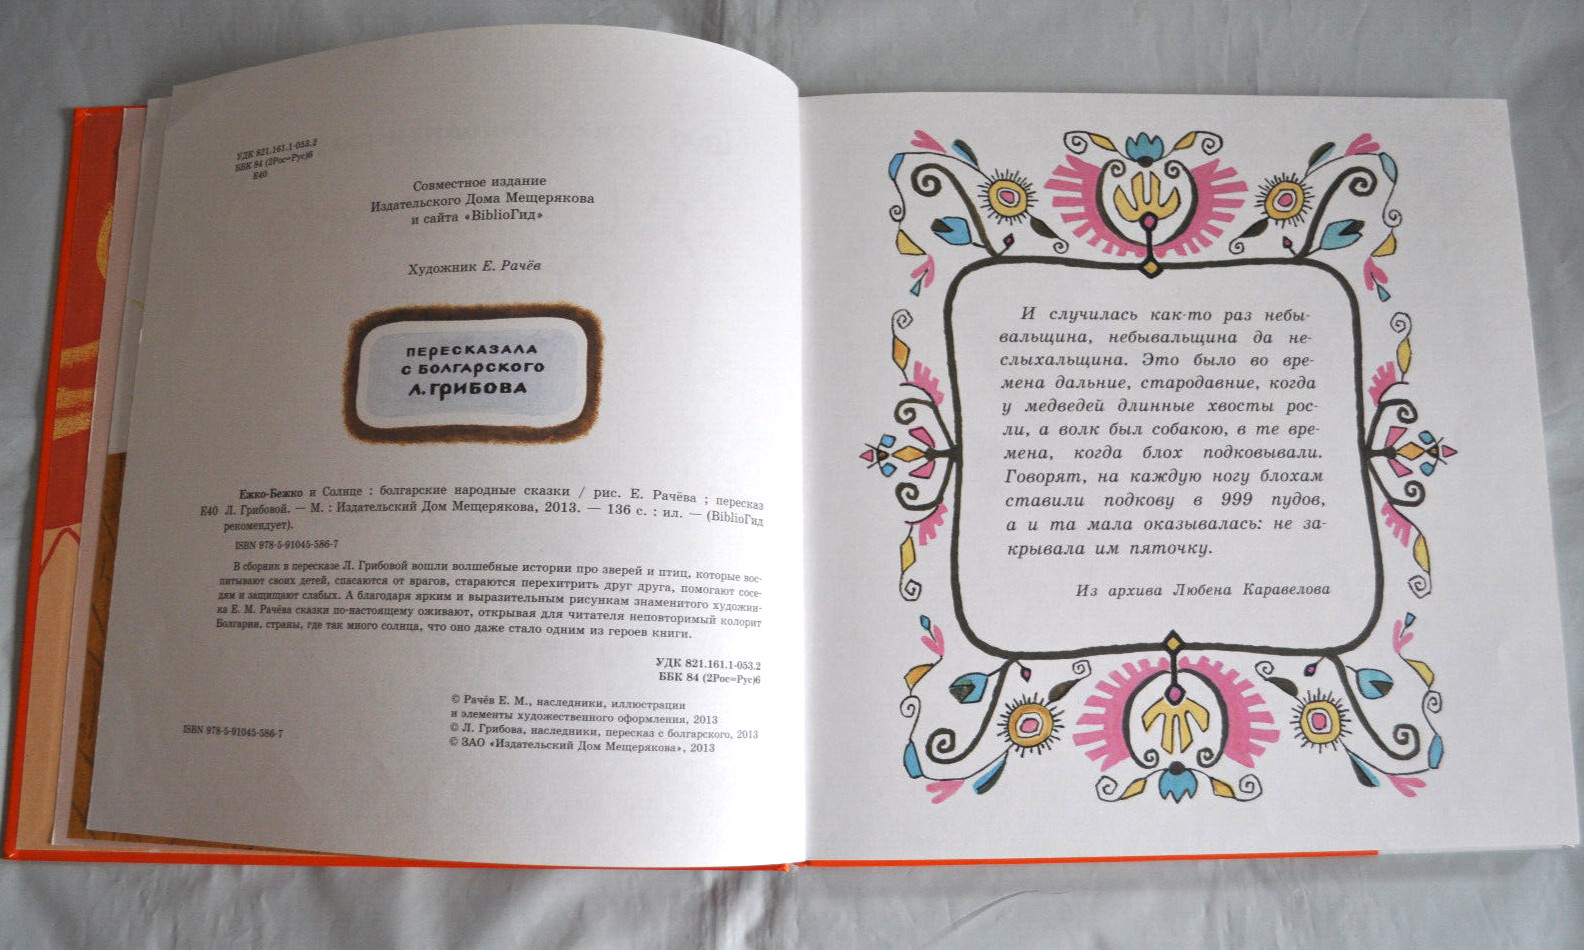 УДК 821.161.1-053.2
ББК 84 (2Рос=Рус)6
Е40
Совместное издание
Издательского Дома Мещерякова
и сайта «BiblioГид»
Художник Е. Рачёв
ПЕРЕСКАЗАЛА
С БОЛГАРСКОГО
Л. ГРИБОВА
Ежко-Бежко и Солнце : болгарские народные сказки / рис. Е. Рачёва ; пересказ
Е40 Л. Грибовой. — М. : Издательский Дом Мещерякова, 2013. — 136 с. : ил. — (BiblioГид
рекомендует).
ISBN 978-5-91045-586-7
В сборник в пересказе Л. Грибовой вошли волшебные истории про зверей и птиц, которые вос-
питывают своих детей, спасаются от врагов, стараются перехитрить друг друга, помогают сосе-
дям и защищают слабых. А благодаря ярким и выразительным рисункам знаменитого художни-
ка Е. М. Рачёва сказки по-настоящему оживают, открывая для читателя неповторимый колорит
Болгарии, страны, где так много солнца, что оно даже стало одним из героев книги.
УДК 821.161.1-053.2
ББК 84 (2Рос=Рус)6
© Рачёв Е. М., наследники, иллюстрации
и элементы художественного оформления, 2013
© Л. Грибова, наследники, пересказ с болгарского, 2013
© ЗАО «Издательский Дом Мещерякова», 2013
ISBN 978-5-91045-586-7
И случилась как-то раз небы-
вальщина, небывальщина да не-
слыхальщина. Это было во вре-
мена дальние, стародавние, когда
у медведей длинные хвосты рос-
ли, а волк был собакою, в те вре-
мена, когда блох подковывали.
Говорят, на каждую ногу блохам
ставили подкову в 999 пудов,
а и та мала оказывалась: не за-
крывала им пяточку.
Из архива Любена Каравелова